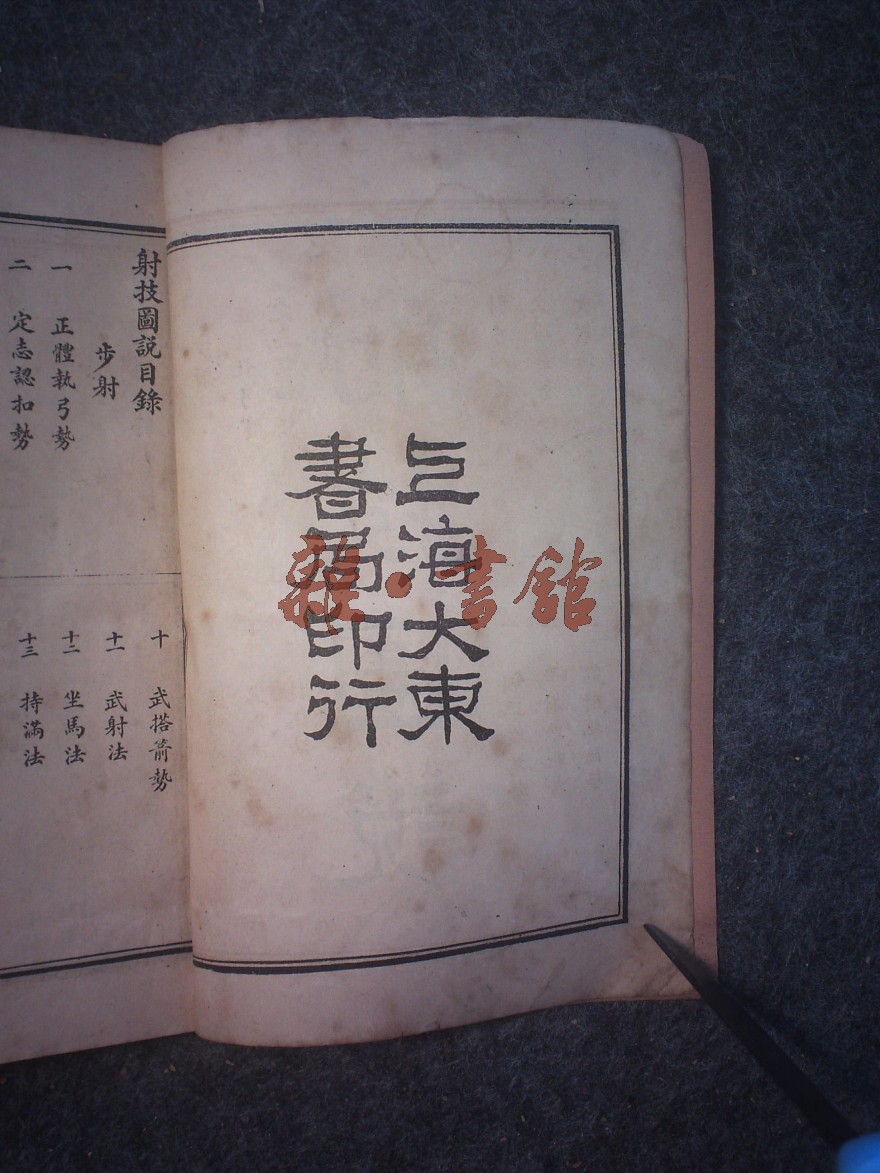 上海大東
書局印行
射技圖説目錄
步射
一 正體執弓勢
二 定志認扣勢
十 武搭箭勢
十一 武射法
十二 坐馬法
十三 持滿法
雜·書館